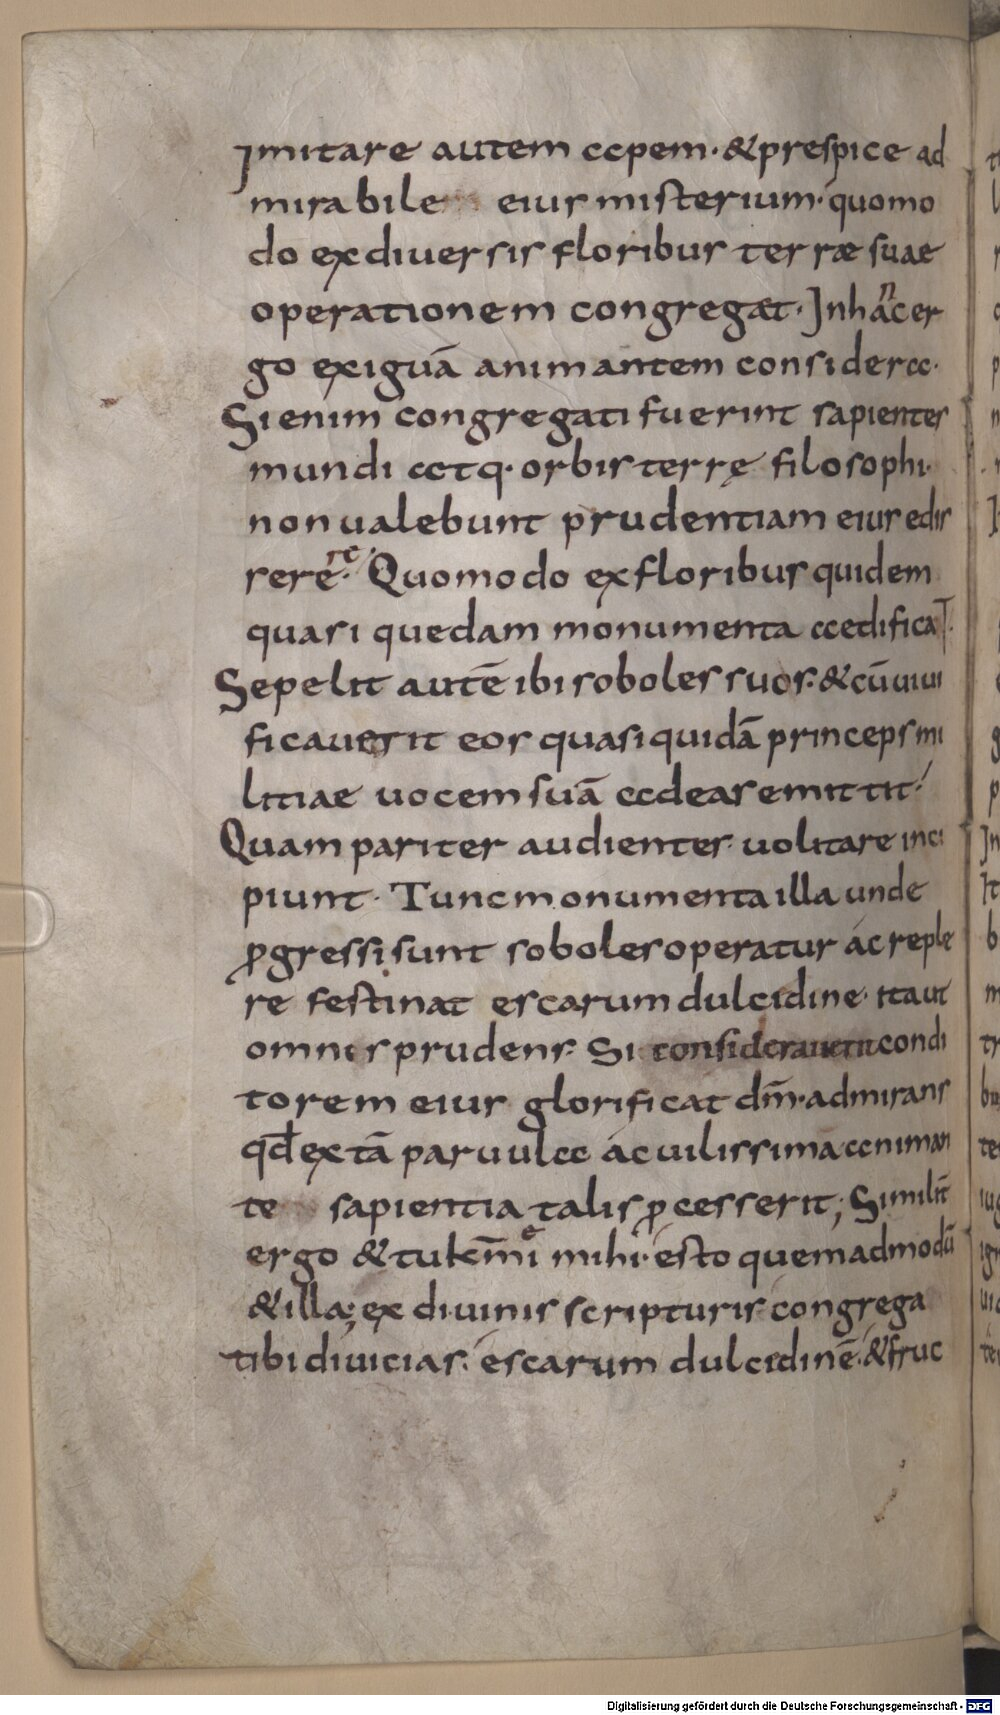 Imitare autem apem· & prespice ad
mirabile eius misterium· quomo
do ex diuersis floribus terræ suae
operationem congregat· In hanc er
go exiguā animantem considera·
Si enim congregati fuerint sapientes
mundi atq· orbis terrę filosophi·
non ualebunt prudentiam eius edis
rere rē· Quomodo ex floribus quidem
quasi quedam monumenta aedificat·
Sepelit autē ibi soboles suos· & cū uiui
ficauerit eos quasi quidā princeps mi
litiae uocem suā ad eas emittit·
Quam pariter audientes uolitare inci
piunt· Tunc monumenta illa unde
ꝓgressi sunt soboles operatur ac reple
re festinat escarum dulcidine· ita ut
omnis prudens· Si considerauerit condi
torem eius glorificat dm̄· admirans
qd̄ ex tā paruula ac uilissima animan
te sapientia talis ꝓcesserit; Similit̄
ergo & tu km̄e i mihi· esto quemadmodū
& illa; ex diuinis scripturis congrega
tibi diuicias· escarum dulcidinē· & fruc
Digitalisierung gefördert durch die Deutsche Forschungsgemeinschaft - DFG